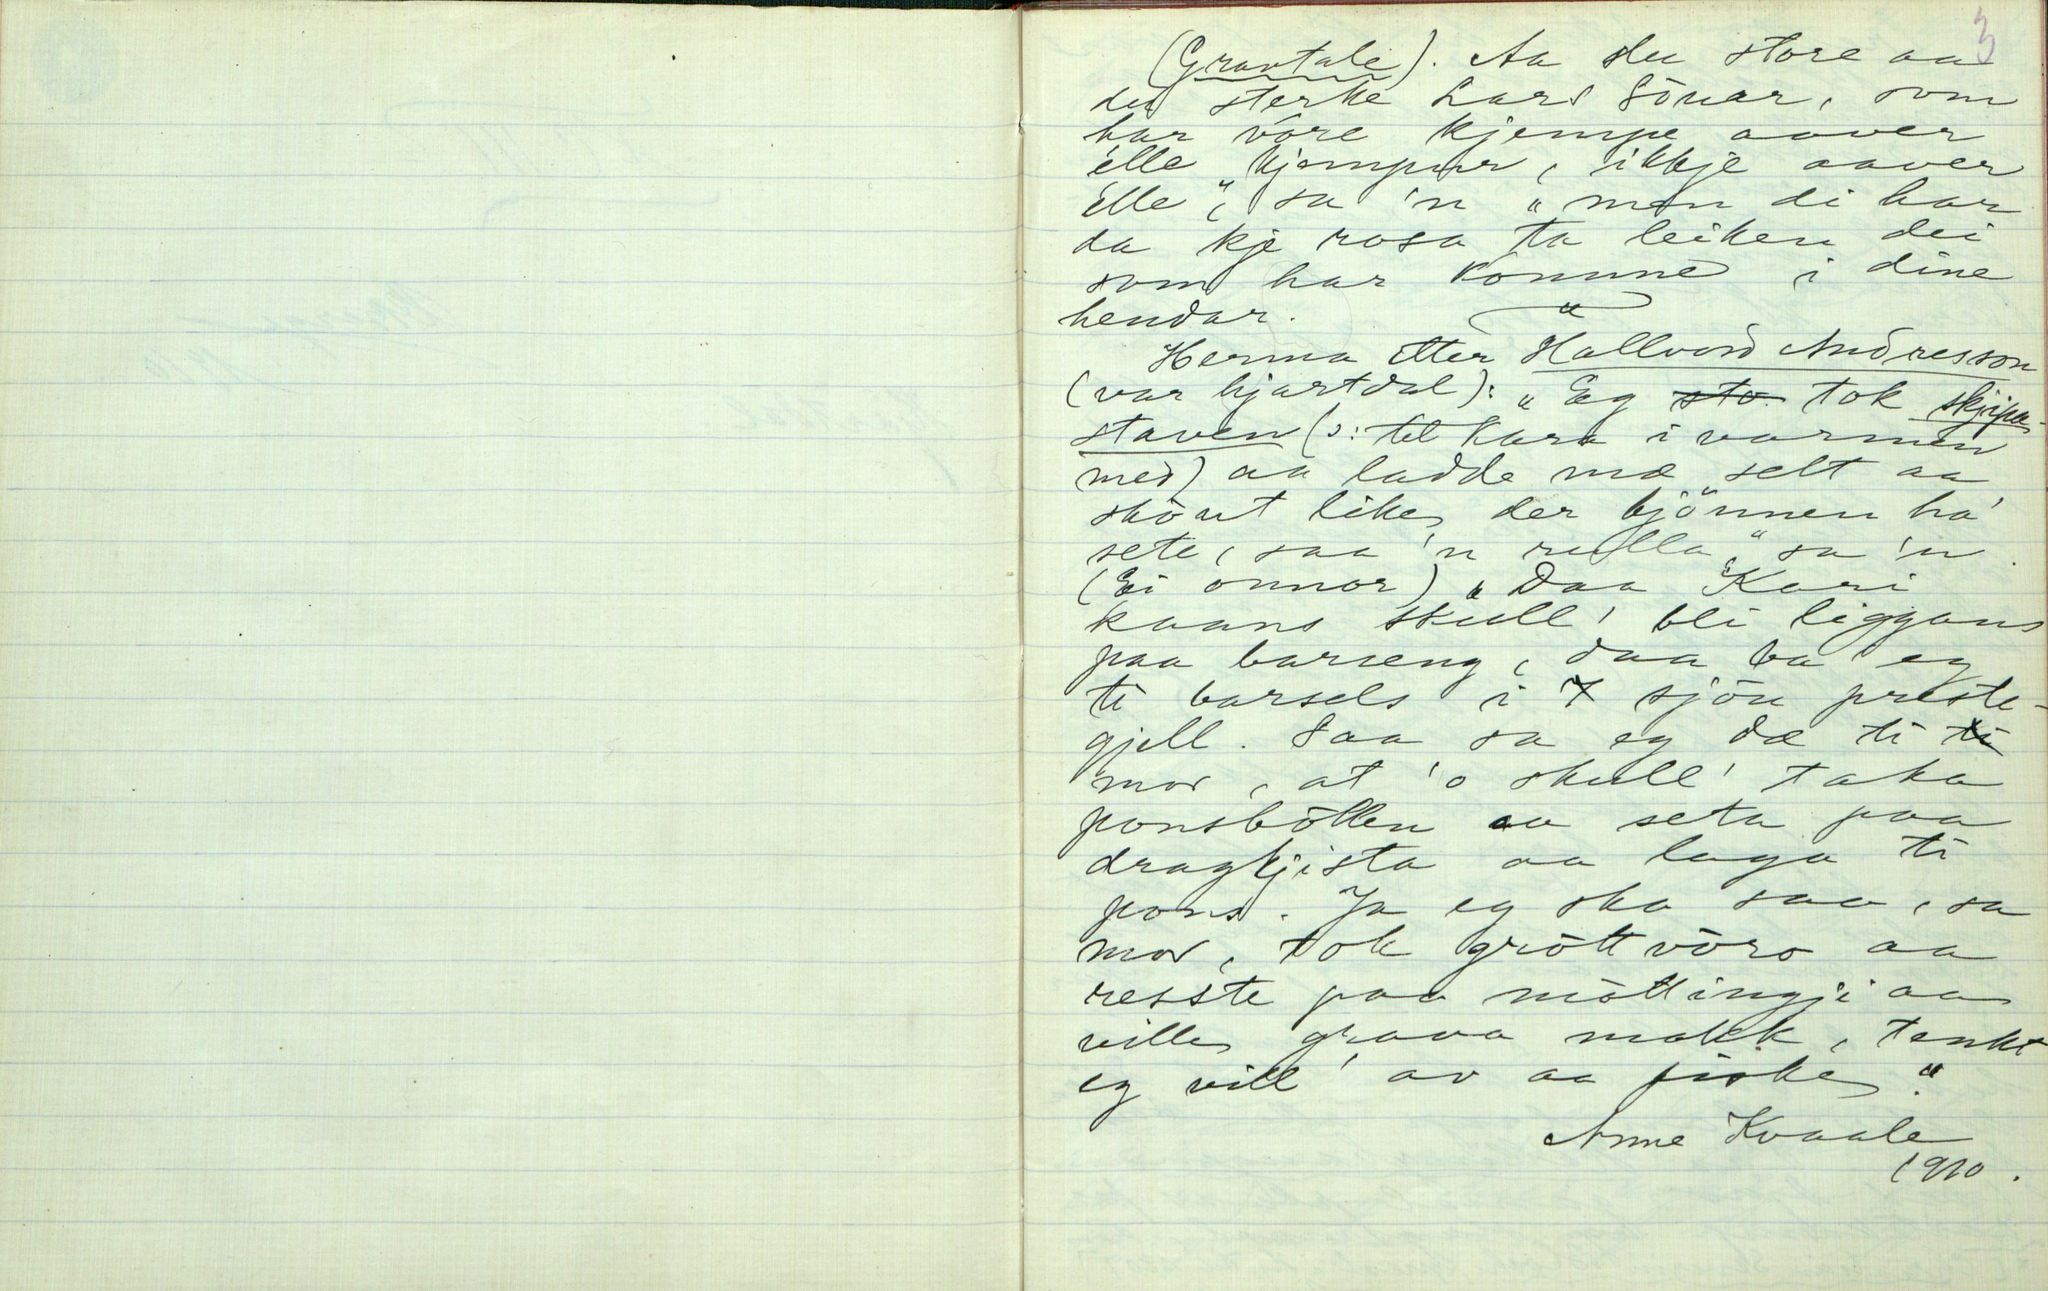 3
(Gravtale). Aa du store aa
du sterke Lars Sönar, som
har vöre kjempe aaver
elle "kjempur, ikkje aaver
elle", sa 'n "men di har
da kje rosa ta leiken dei
som har kömme i dine
hendar."
Herma etter Hallvord Andresson
(var hjartdøl): "Eg sto tok skjipa-
staven (ɔ: til kara i varmen
med) aa ladde mæ selt aa
skönt like der bjönnen ha'
sete, saa 'n rulla," sa 'n.
(Ei onnor) "Daa Kari
kaans skull' bli liggans
paa barseng, daa va eg
ti barsels i 7 sjöu preste-
gjell. Saa sa eg dæ ti ti
mor, at 'o skull' taka
ponsbôllen aa seta paa
dragkjista aa laga ti
pons. Ja eg ska saa, sa
mor, tok gröttvöro aa
resste paa möttingji aa
ville grava makk, tenkt
eg vill' av aa fiske."
Anne Kvaale
1910.